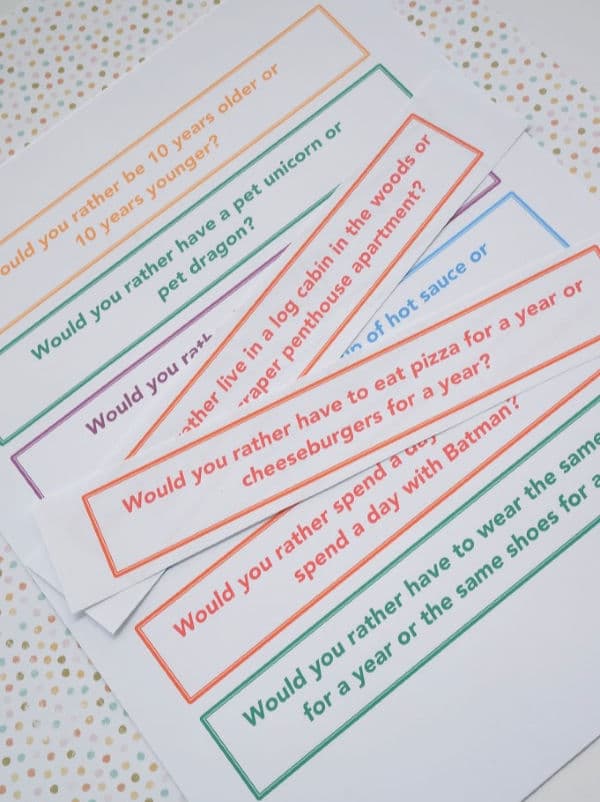 ould you rather be 10 years older or
10 years younger?
Would you rather have a pet unicorn or
pet dragon?
Would you rath
ther live in a log cabin in the woods or
raper penthouse apartment?
of hot sauce or
Would you rather have to eat pizza for a year or
cheeseburgers for a year?
Would you rather spend a day
spend a day with Batman?
Would you rather have to wear the same
for a year or the same shoes for a